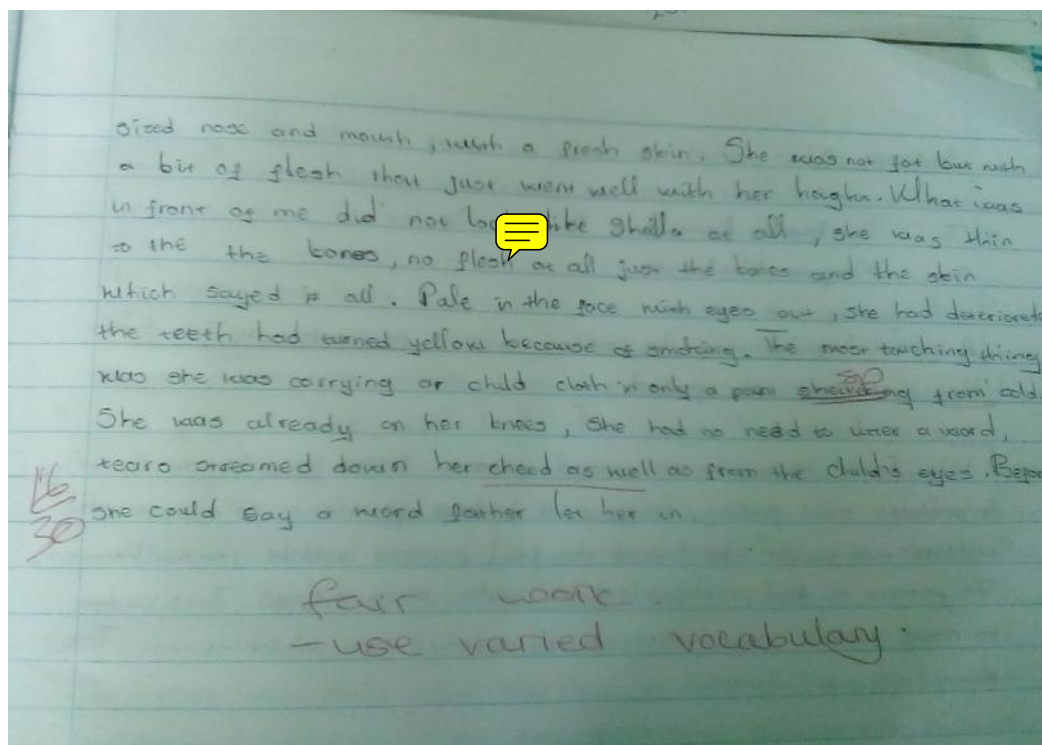 sized nose and mouth, with a fresh skin. She was not fat but with
a bit of flesh that just went well with her height. What was
in front of me did not look like Sheila at all, she was thin
to the the bones, no flesh at all just the bones and the skin
which sayed it all. Pale in the face with eyes out, she had deteriorated
the teeth had turned yellow because of smoking. The most touching thing
was she was carrying a child cloth in only a from cold.
She was already on her knees, she had no need to utter a word,
tears streamed down her cheed as well as from the child's eyes. Before
she could say a word father let her in.
16
30
sp
fair work.
- use varied vocabulary.